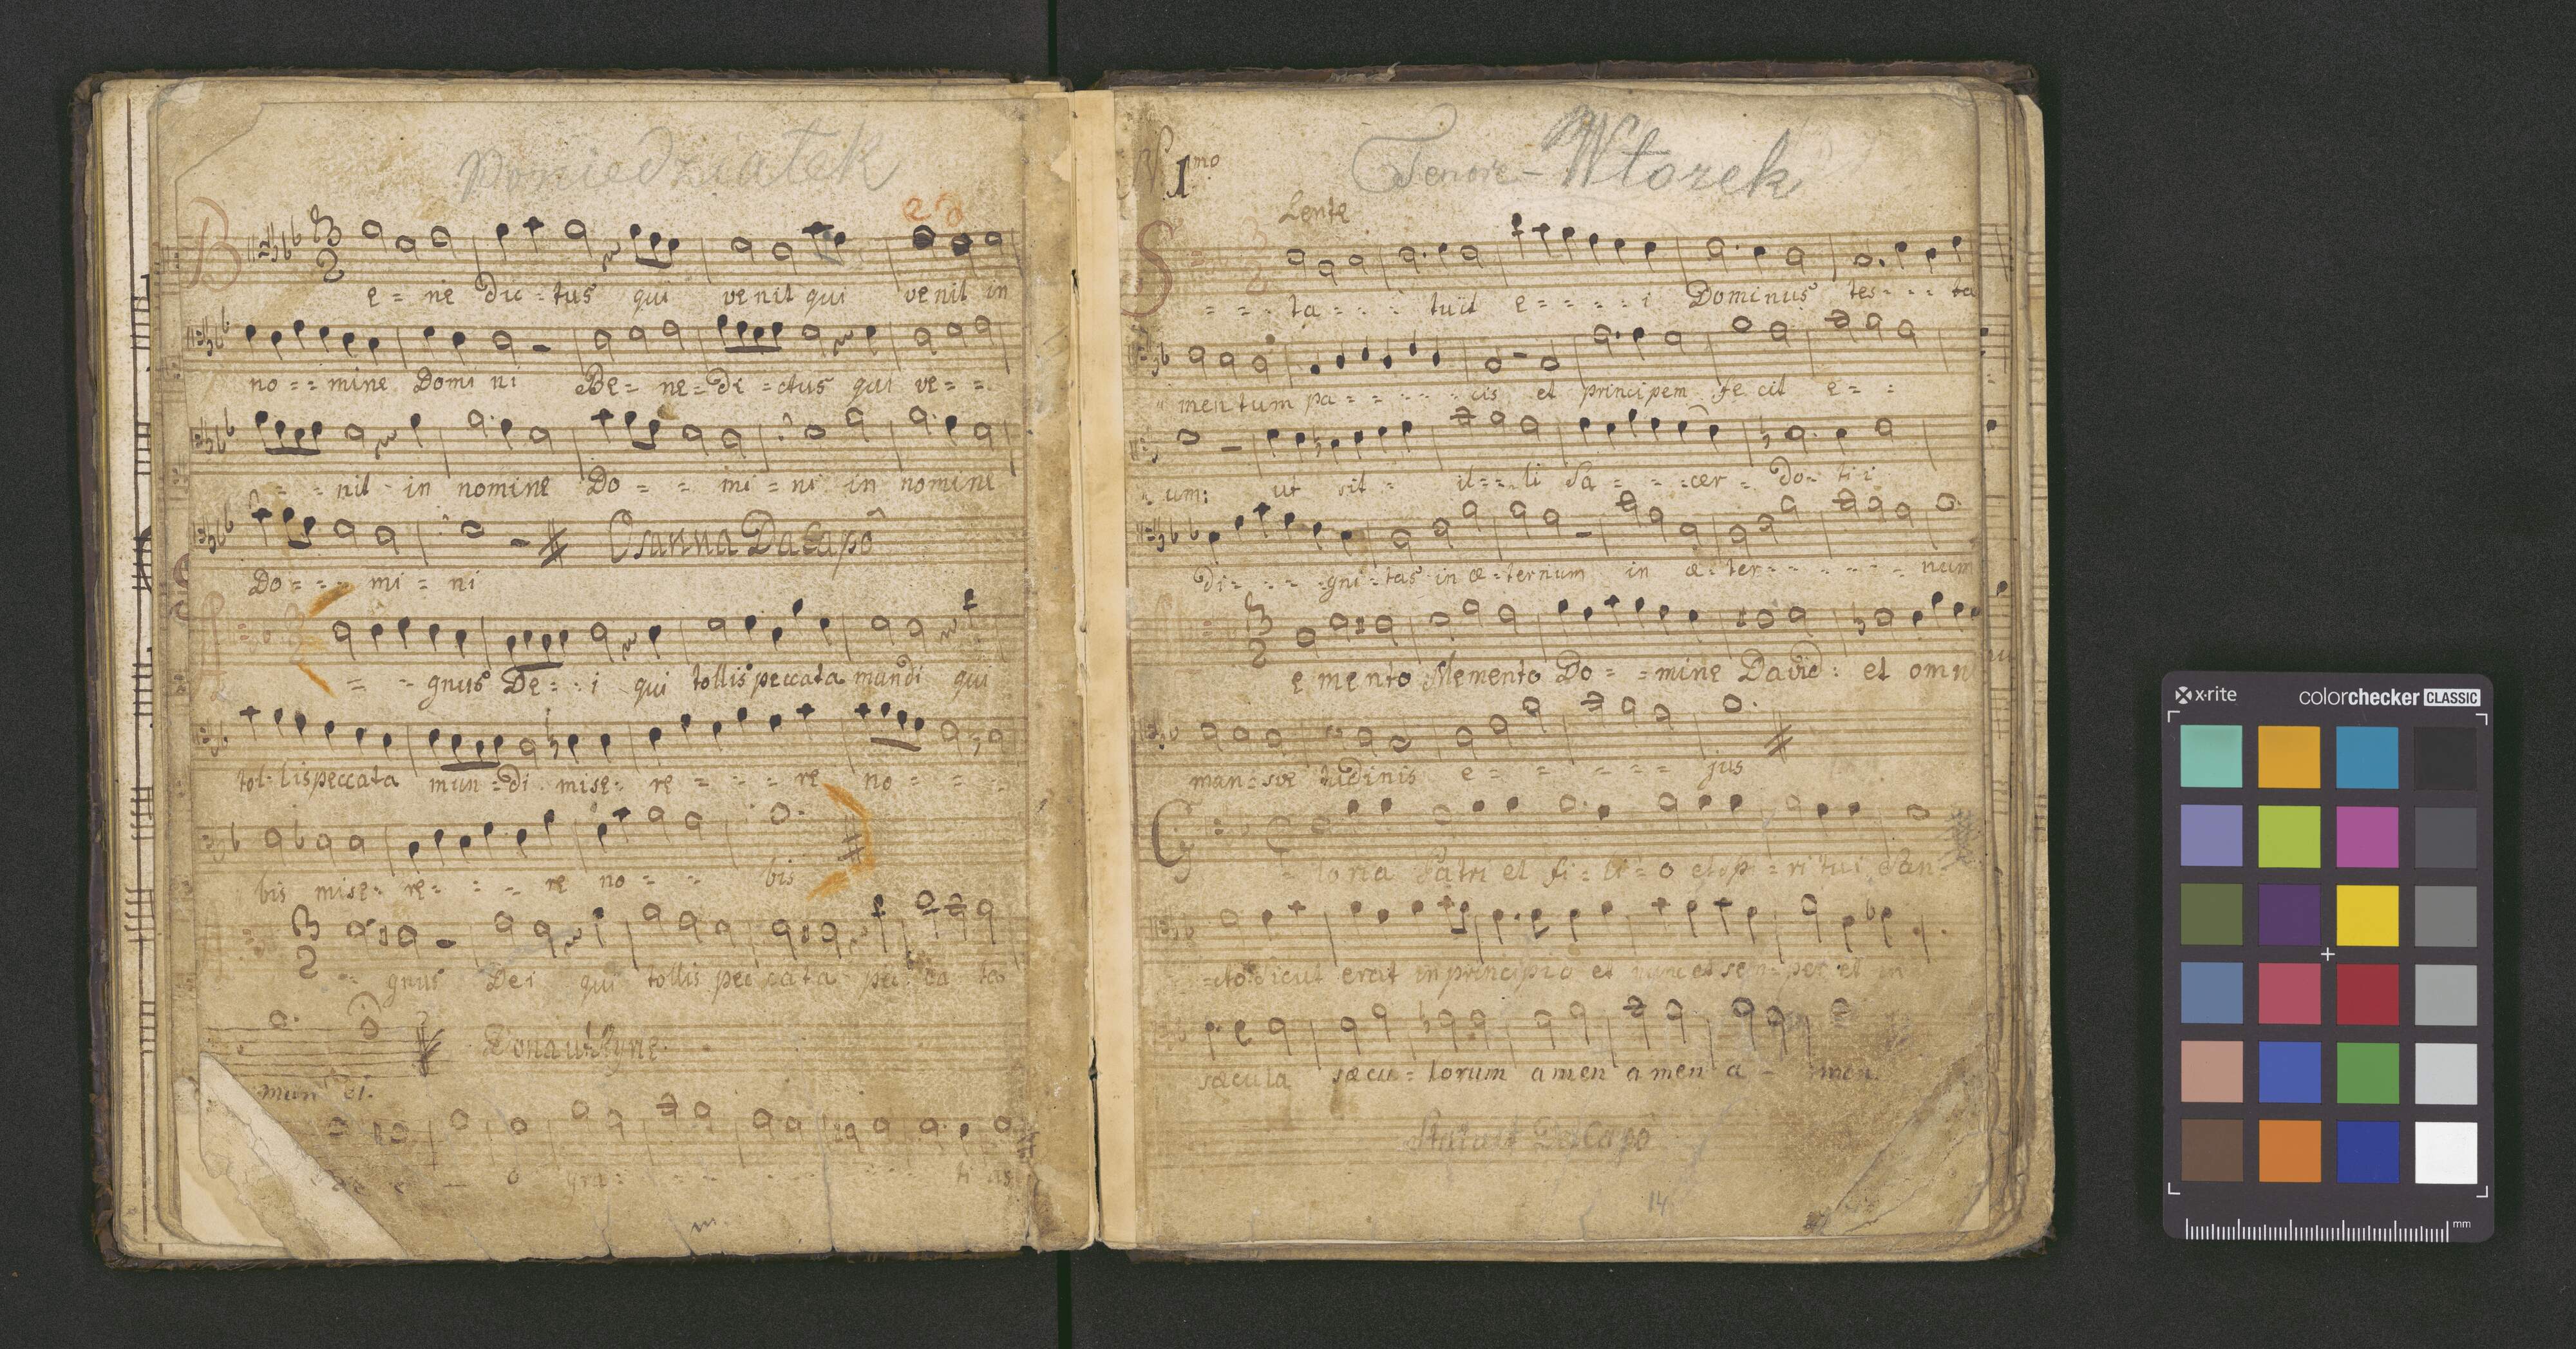 Poniedziałek
B
3
2
e = ne Dic - tus qui venit qui venit in
no = = mine Domi ni Be = ne = di = ctus qui ve = =
= = nit in nomine Do = = mi = ni in nomine
Osanna Da Capo
Do = = = mi = ni
A
= = gnus De = = i qui tollis peccata mundi qui
tol = lis peccata mun = di mise = re = = = re no = = =
bis mise = re = = = re no = = bis
3
2
= gnus Dei qui tollis peccata pec ca ta
Dona ut Kyrie
mun di.
o gra = = = ti as
N 1mo
Tenore - Wtorek
Lente
S
= = = ta = = = tuit e = = = = i Dominus tes = = = ta
= mentum pa = = = = = cis et principem fe cit e = =
= um: ut sit = il = = li Sa = = = cer = Do = ti i
Di = = = = gni = tas in æ = ternum in æ = ter = = = = = = num
3
2
e mento Memento Do = = mine David : et omn
man = sue tudinis e = = = = = jus
G
= loria Patri et fi = li = o et Sp = ri tui San =
= cto Sicut erat in principio et nunc et sem = per et in
sæcula sæcu = lorum amen amen a = men.
Statuit Da Capo
14
x·rite colorchecker CLASSIC
mm